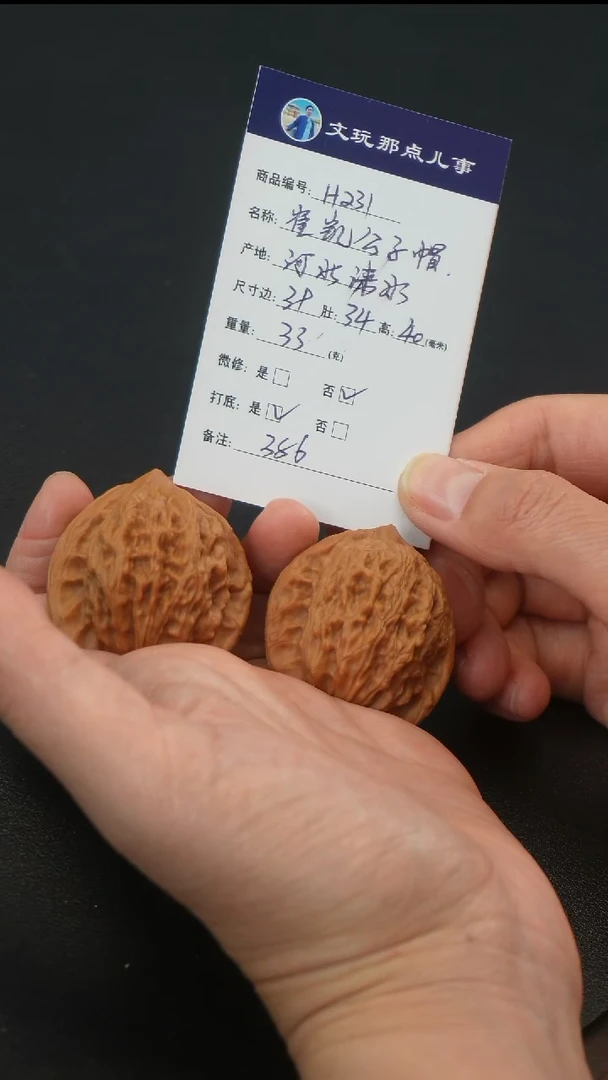 文玩那点儿事
商品编号: H231
名称: 崔凯公子帽.
产地: 河北涞水
尺寸边: 38 肚: 34 高: 40 (毫米)
重量: 33 (克)
微修: 是□ 否☑
打底: 是☑ 否□
备注: 386